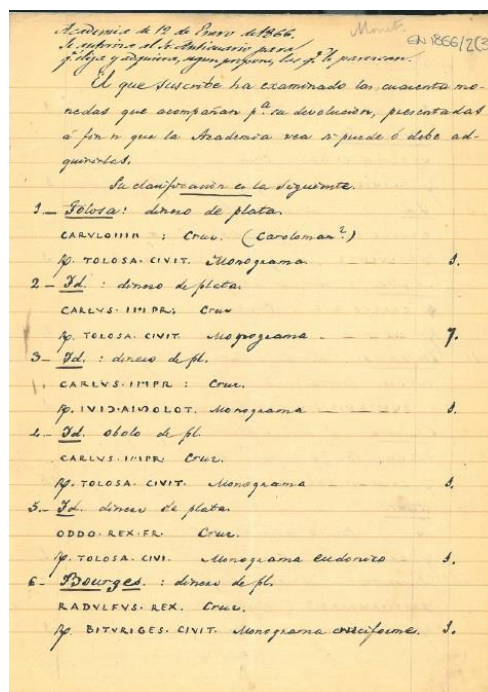 Academia de 12 de Enero de 1866.
Se autoriza al Sr. Anticuario para
q. elija y adquiera, segun propone, las q. le parezcan.
Monet.
EN 1866/2(3
El que suscribe ha examinado las cuarenta mo-
nedas que acompañan pa. su devolucion, presentadas
á fin n que la Academia vea si puede ó debe ad-
quirirlas.
Su clasificacion es la siguiente.
1.– Tolosa: dinero de plata.
CARVLOIIIII : Cruz. (Caroloman?)
R). TOLOSA. CIVIT. Monograma – – – 1.
2 – Id. : dinero de plata.
CARLVS. IMPR: Cruz
R). TOLOSA. CIVIT. Monograma – – – 7.
3– Id. : dinero de pl.
CARLVS. IMPR : Cruz.
R). Monograma – – – 1.
4– Id. obolo de pl.
CARLVS. IMPR. Cruz.
R). TOLOSA. CIVIT. Monograma 1.
5.– Id. dinero de plata.
ODDO. REX. FR. Cruz.
R). TOLOSA. CIVI. Monograma eudonico 1.
6– Bourges. : dinero de pl.
RADVLFVS. REX. Cruz.
R). BITVRIGES. CIVIT. Monograma cruciforme. 1.